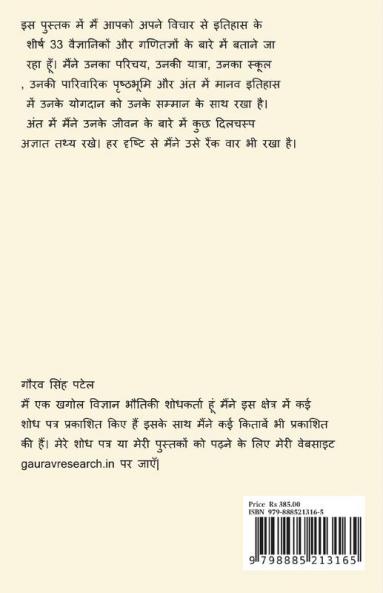 इस पुस्तक में मैं आपको अपने विचार से इतिहास के
शीर्ष 33 वैज्ञानिकों और गणितज्ञों के बारे में बताने जा
रहा हूँ। मैंने उनका परिचय, उनकी यात्रा, उनका स्कूल
, उनकी पारिवारिक पृष्ठभूमि और अंत में मानव इतिहास
में उनके योगदान को उनके सम्मान के साथ रखा है।
अंत में मैंने उनके जीवन के बारे में कुछ दिलचस्प
अज्ञात तथ्य रखे। हर दृष्टि से मैंने उसे रैंक वार भी रखा है।
गौरव सिंह पटेल
मैं एक खगोल विज्ञान भौतिकी शोधकर्ता हूं मैंने इस क्षेत्र में कई
शोध पत्र प्रकाशित किए हैं इसके साथ मैंने कई किताबें भी प्रकाशित
की हैं। मेरे शोध पत्र या मेरी पुस्तकों को पढ़ने के लिए मेरी वेबसाइट
gauravresearch.in पर जाएँ|
Price Rs 385.00
ISBN 979-888521316-5
9 798885 213165